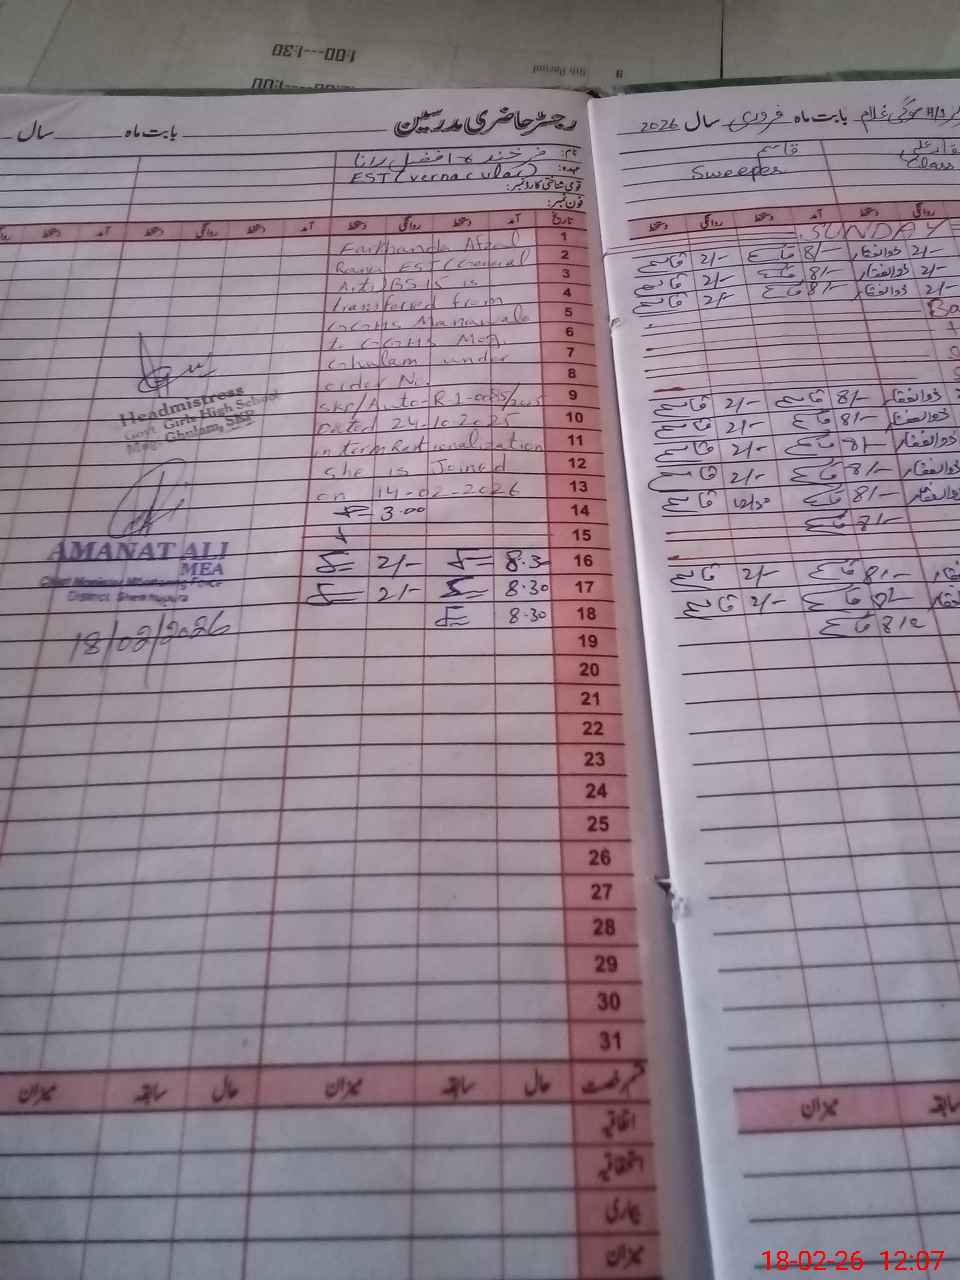 1:00---1:30
8th Period
رجسٹر حاضری مدرسین
بابت ماہ
سال
نام: فرخندہ افضل رانا
عہدہ: EST (vernacular)
قومی شناختی کارڈ نمبر:
فون نمبر:
تاریخ آمد دستخط روانگی دستخط آمد دستخط روانگی دستخط
1 Farkhanda Afzal
2 Rana EST (General
3 Arti) BS 15 is
4 transfered from
5 GGHS Manawala
6 to GGHS M
7 Ghulam under
8 order No.
9 SKP/A R-1-
10 Dated 24-10-2025
11 in term Rationalization
12 she is Joined
13 on 14-02-2026
14 3.00
15
16 8.3 2/-
17 8.30 2/-
18 8.30
19
20
21
22
23
24
25
26
27
28
29
30
31
Headmistress
Govt. Girls High School
Ghulam, SKP
AMANAT ALI
MEA
Chief Minister Monitoring Force
District Sheikhupura
18/02/2026
قسم رخصت حال سابقہ میزان حال سابقہ میزان
اتفاقیہ
استحقاقیہ
بیماری
میزان
غلام بابت ماہ فروری سال 2026
قاسم
Sweeper
Class
روانگی دستخط آمد دستخط روانگی دستخط
SUNDAY
2/- ذوالفقار 8/- قاسم 2/- قاسم
2/- ذوالفقار 8/- قاسم 2/- قاسم
2/- ذوالفقار 8/- قاسم 2/- قاسم
ذوالفقار 8/- قاسم 2/- قاسم
ذوالفقار 8/- قاسم 2/- قاسم
ذوالفقار 8/- قاسم 2/- قاسم
ذوالفقار 8/- قاسم 2/- قاسم
ذوالفقار 8/- قاسم قاسم
8/- قاسم
8/- قاسم 2/- قاسم
قاسم 2/- قاسم
قاسم
سابقہ میزان
18-02-26 12:07